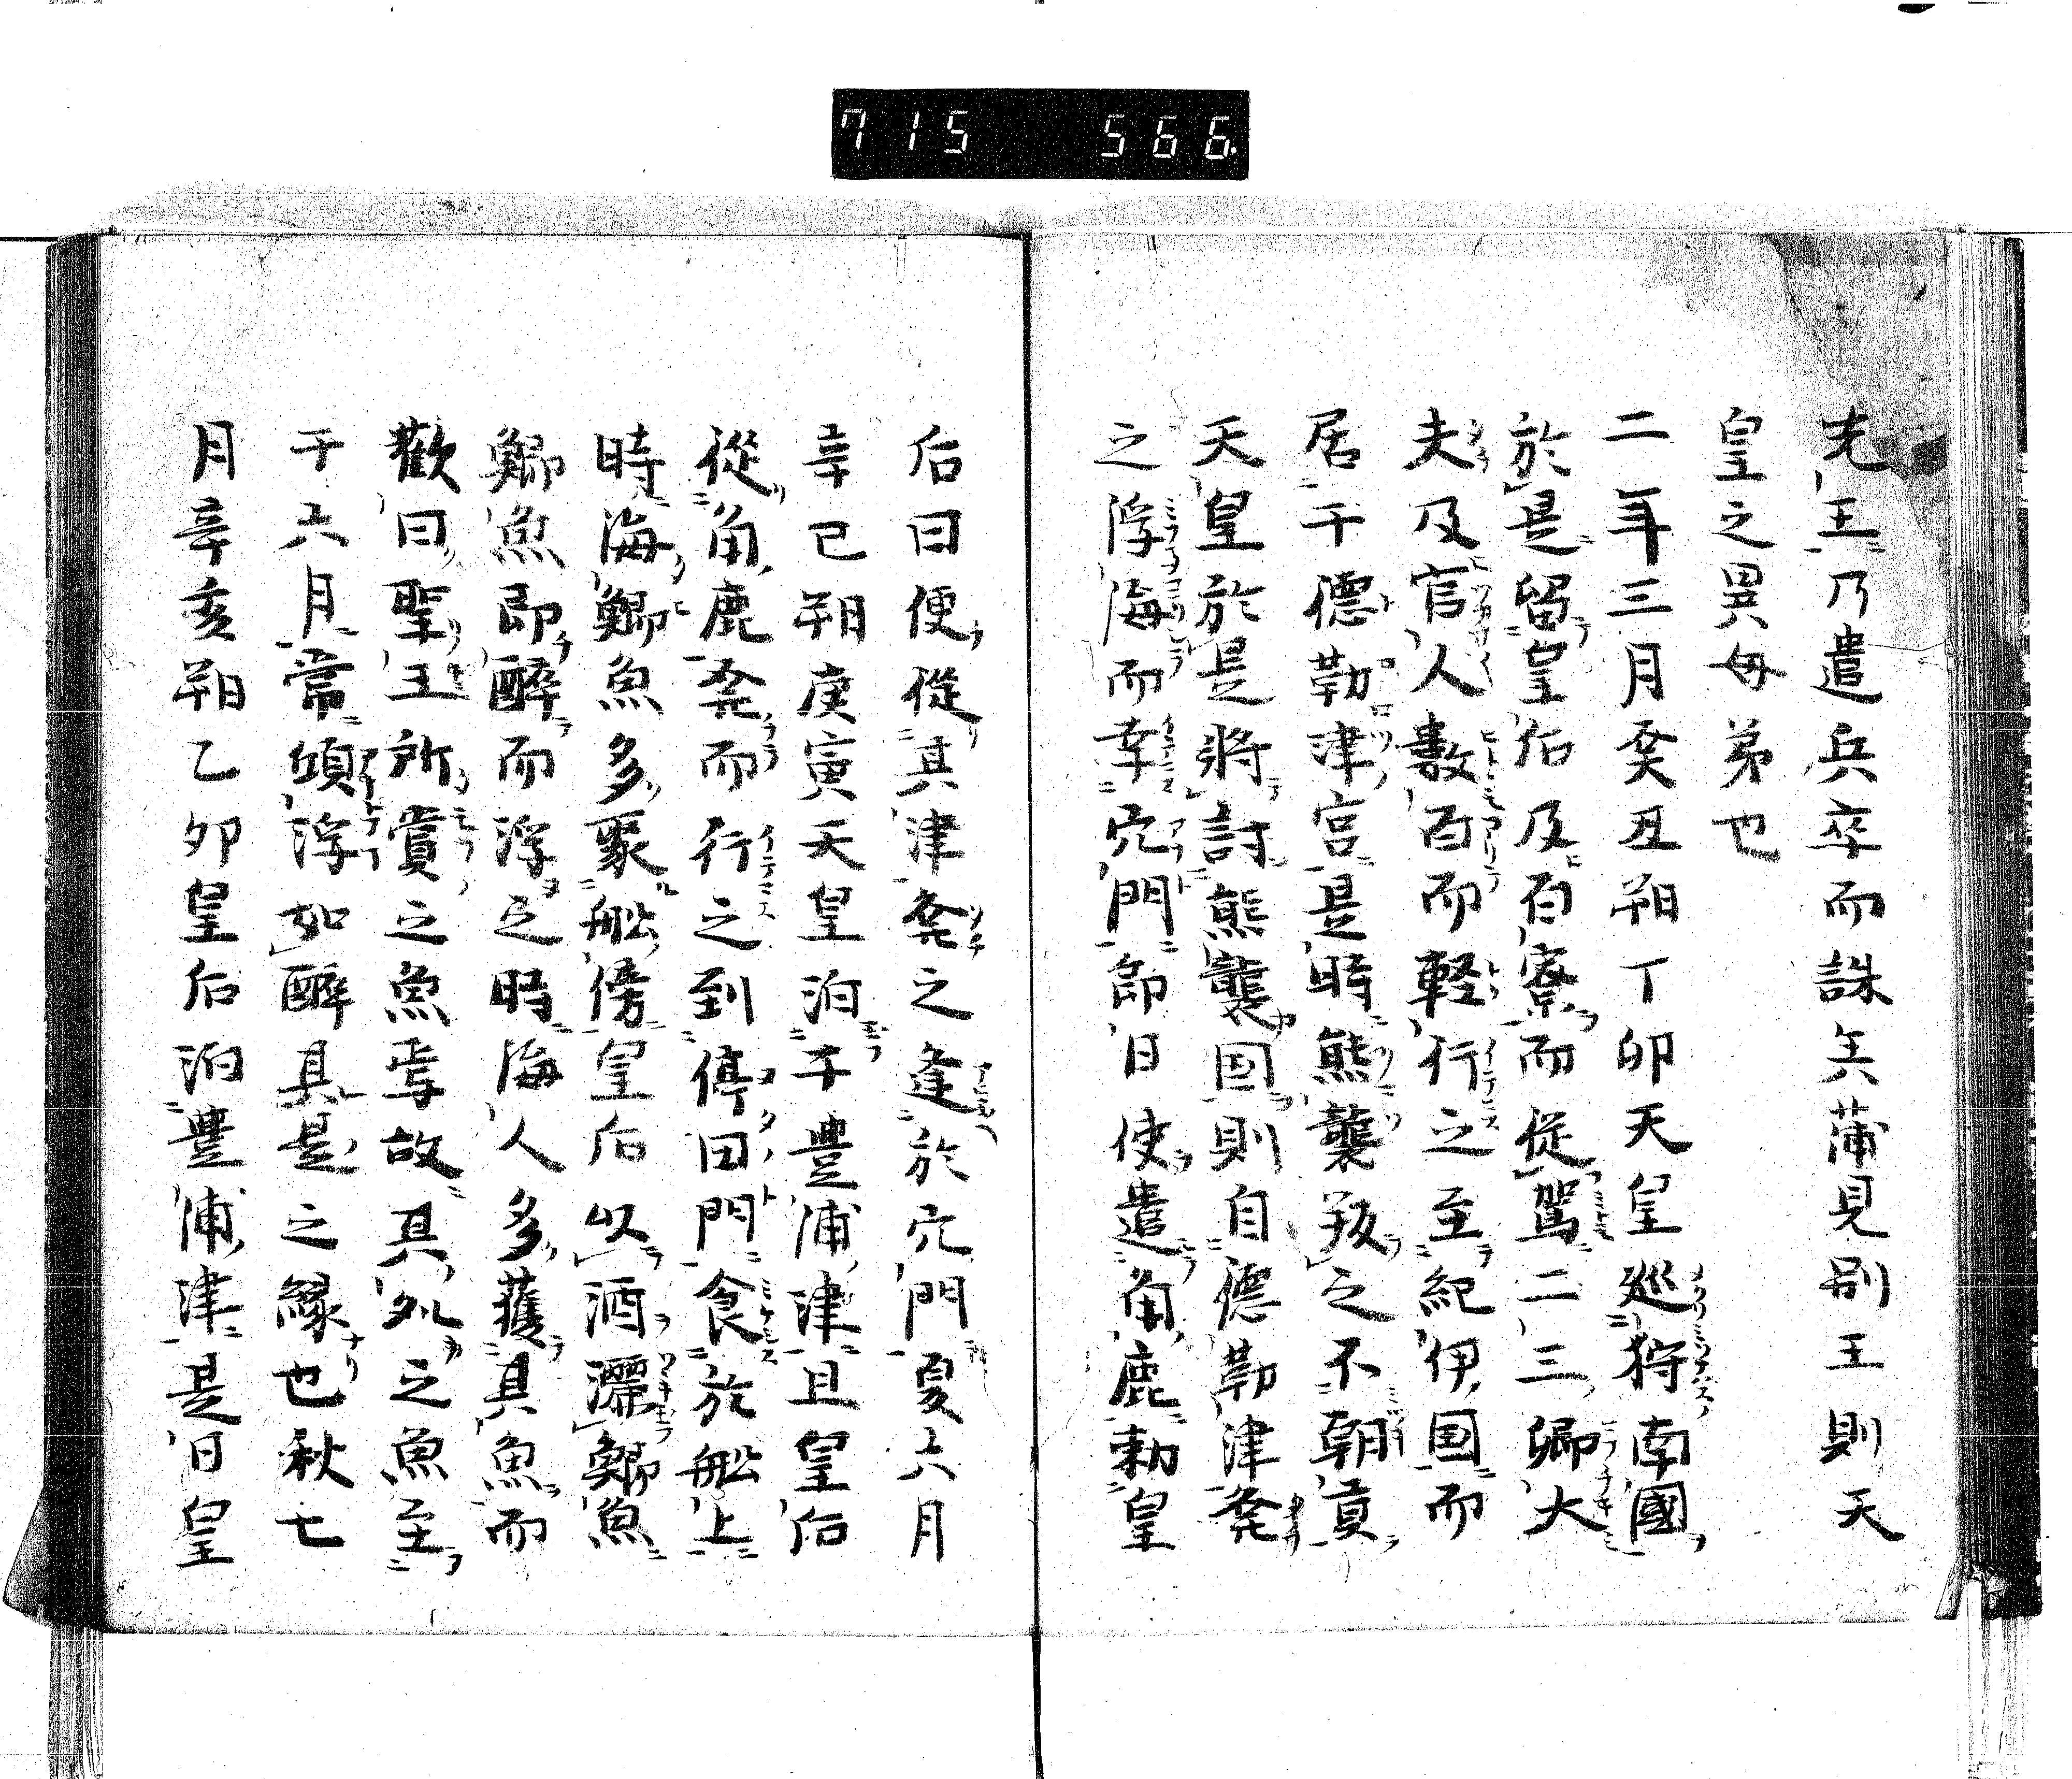 715 566
先王乃遣兵卒而誅矣蒲見別王則天
皇之異母弟也
二年三月癸丑朔丁卯天皇巡狩南國
於是留皇后及百寮而従駕二三卿大
夫及官人數百而軽行之至紀伊国而
居于德勒津宮是時熊襲叛之不朝貢
天皇於是將討熊襲国則自德勒津発
之浮海而幸穴門即日使遣角鹿勅皇
后曰便從其津発之逢於穴門夏六月
辛巳朔庚寅天皇泊于豊浦津且皇后
從角鹿発而行之到停田門食於舩上
時海鯽魚多聚舩傍皇后以酒灑鯽魚
鯽魚即醉而浮之時海人多獲其魚而
歡曰聖王所賞之魚焉故其処之魚至
于六月常傾浮如醉其是之縁也秋七
月辛亥朔乙卯皇后泊豊浦津是日皇